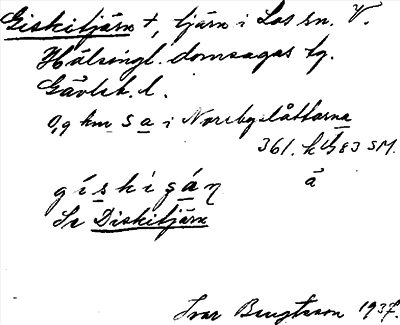 Giskitjärn +, tjärn i Los sn. V.
Hälsingl. domsagas tg.
Gävleb. l.
0,9 km s a i Norrbyslåttarna
361. h 83 SM.
å
gískigáŋ
Se Diskitjärn
Ivar Bengtsson 1937.